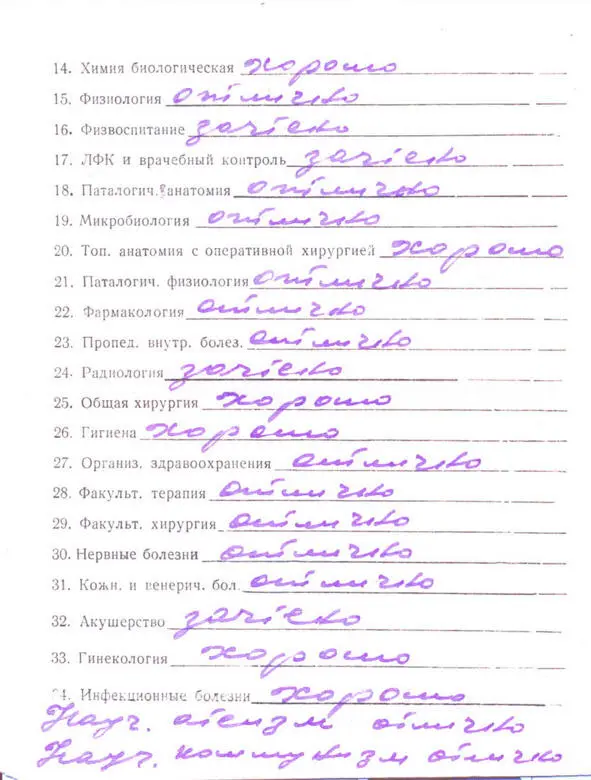 14. Химия биологическая хорошо
15. Физиология отлично
16. Физвоспитание зачтено
17. ЛФК и врачебный контроль зачтено
18. Паталогич. анатомия отлично
19. Микробиология отлично
20. Топ. анатомия с оперативной хирургией хорошо
21. Паталогич. физиология отлично
22. Фармакология отлично
23. Пропед. внутр. болез. отлично
24. Радиология зачтено
25. Общая хирургия хорошо
26. Гигиена хорошо
27. Организ. здравоохранения отлично
28. Факульт. терапия отлично
29. Факульт. хирургия отлично
30. Нервные болезни отлично
31. Кожн. и венерич. бол. отлично
32. Акушерство зачтено
33. Гинекология хорошо
34. Инфекционные болезни хорошо
Науч. атеизм отлично
Науч. коммунизм отлично